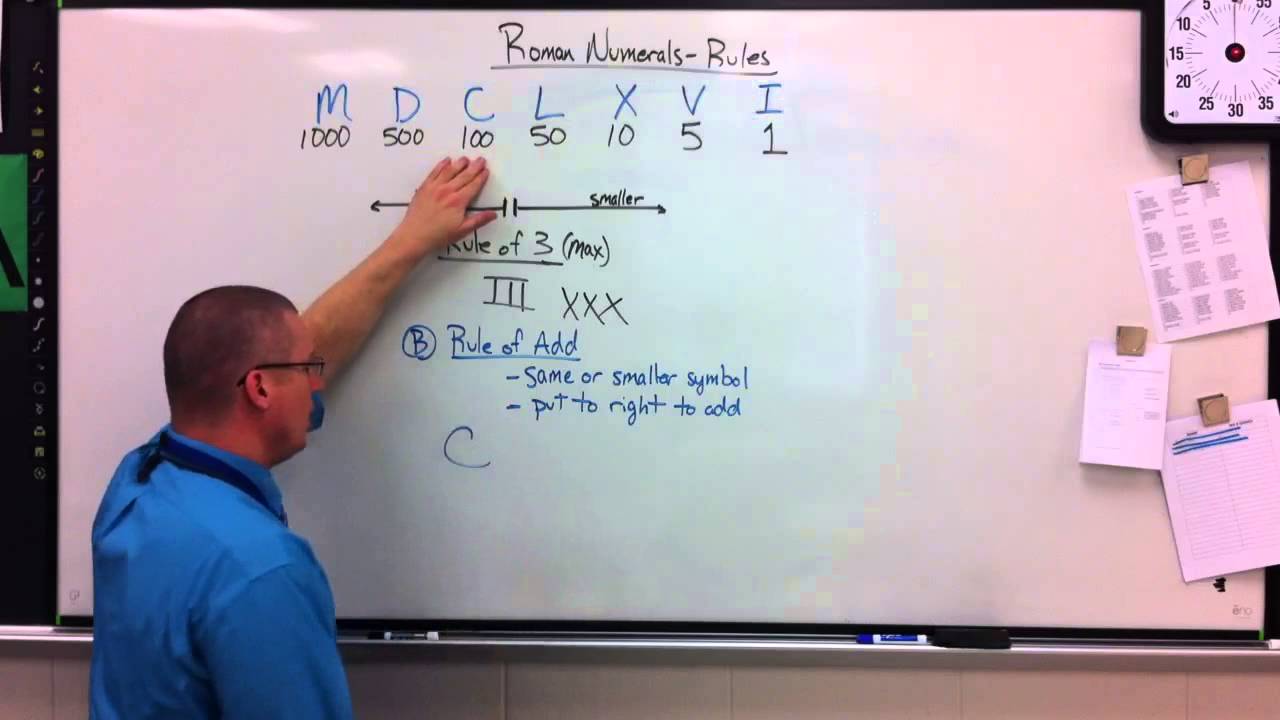 Roman Numerals - Rules
M D C L X V I
1000 500 100 50 10 5 1
smaller
Rule of 3 (max)
III XXX
B Rule of Add
- same or smaller symbol
- put to right to add
C
5 55
10 50
15 45
20 40
25 30 35
eno